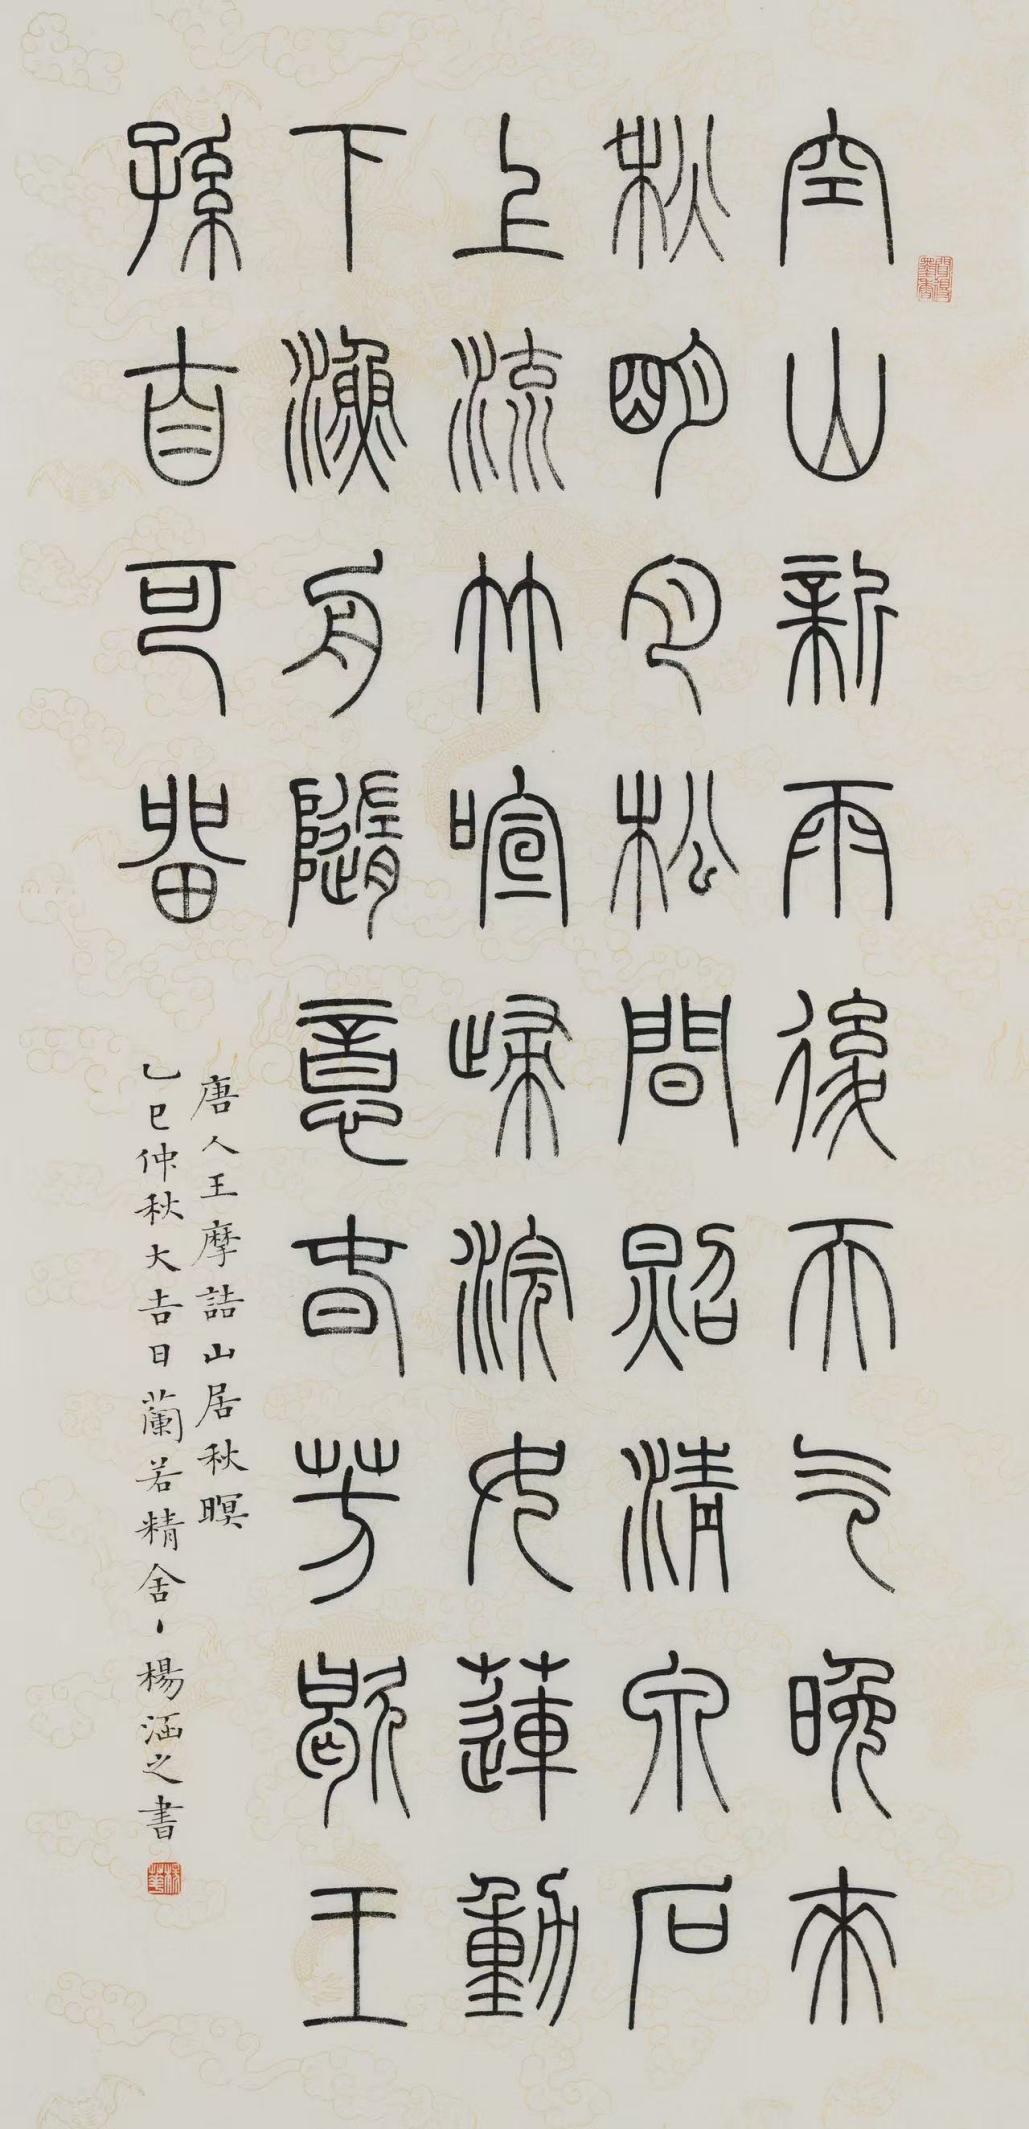 空山新雨後天气晚来
秋朙月松間照清泉石
上流竹喧歸浣女蓮動
下漁舟隨意春芳歇王
孫自可留
唐人王摩詰山居秋暝
乙巳仲秋大吉日蘭若精舍、楊涵之書